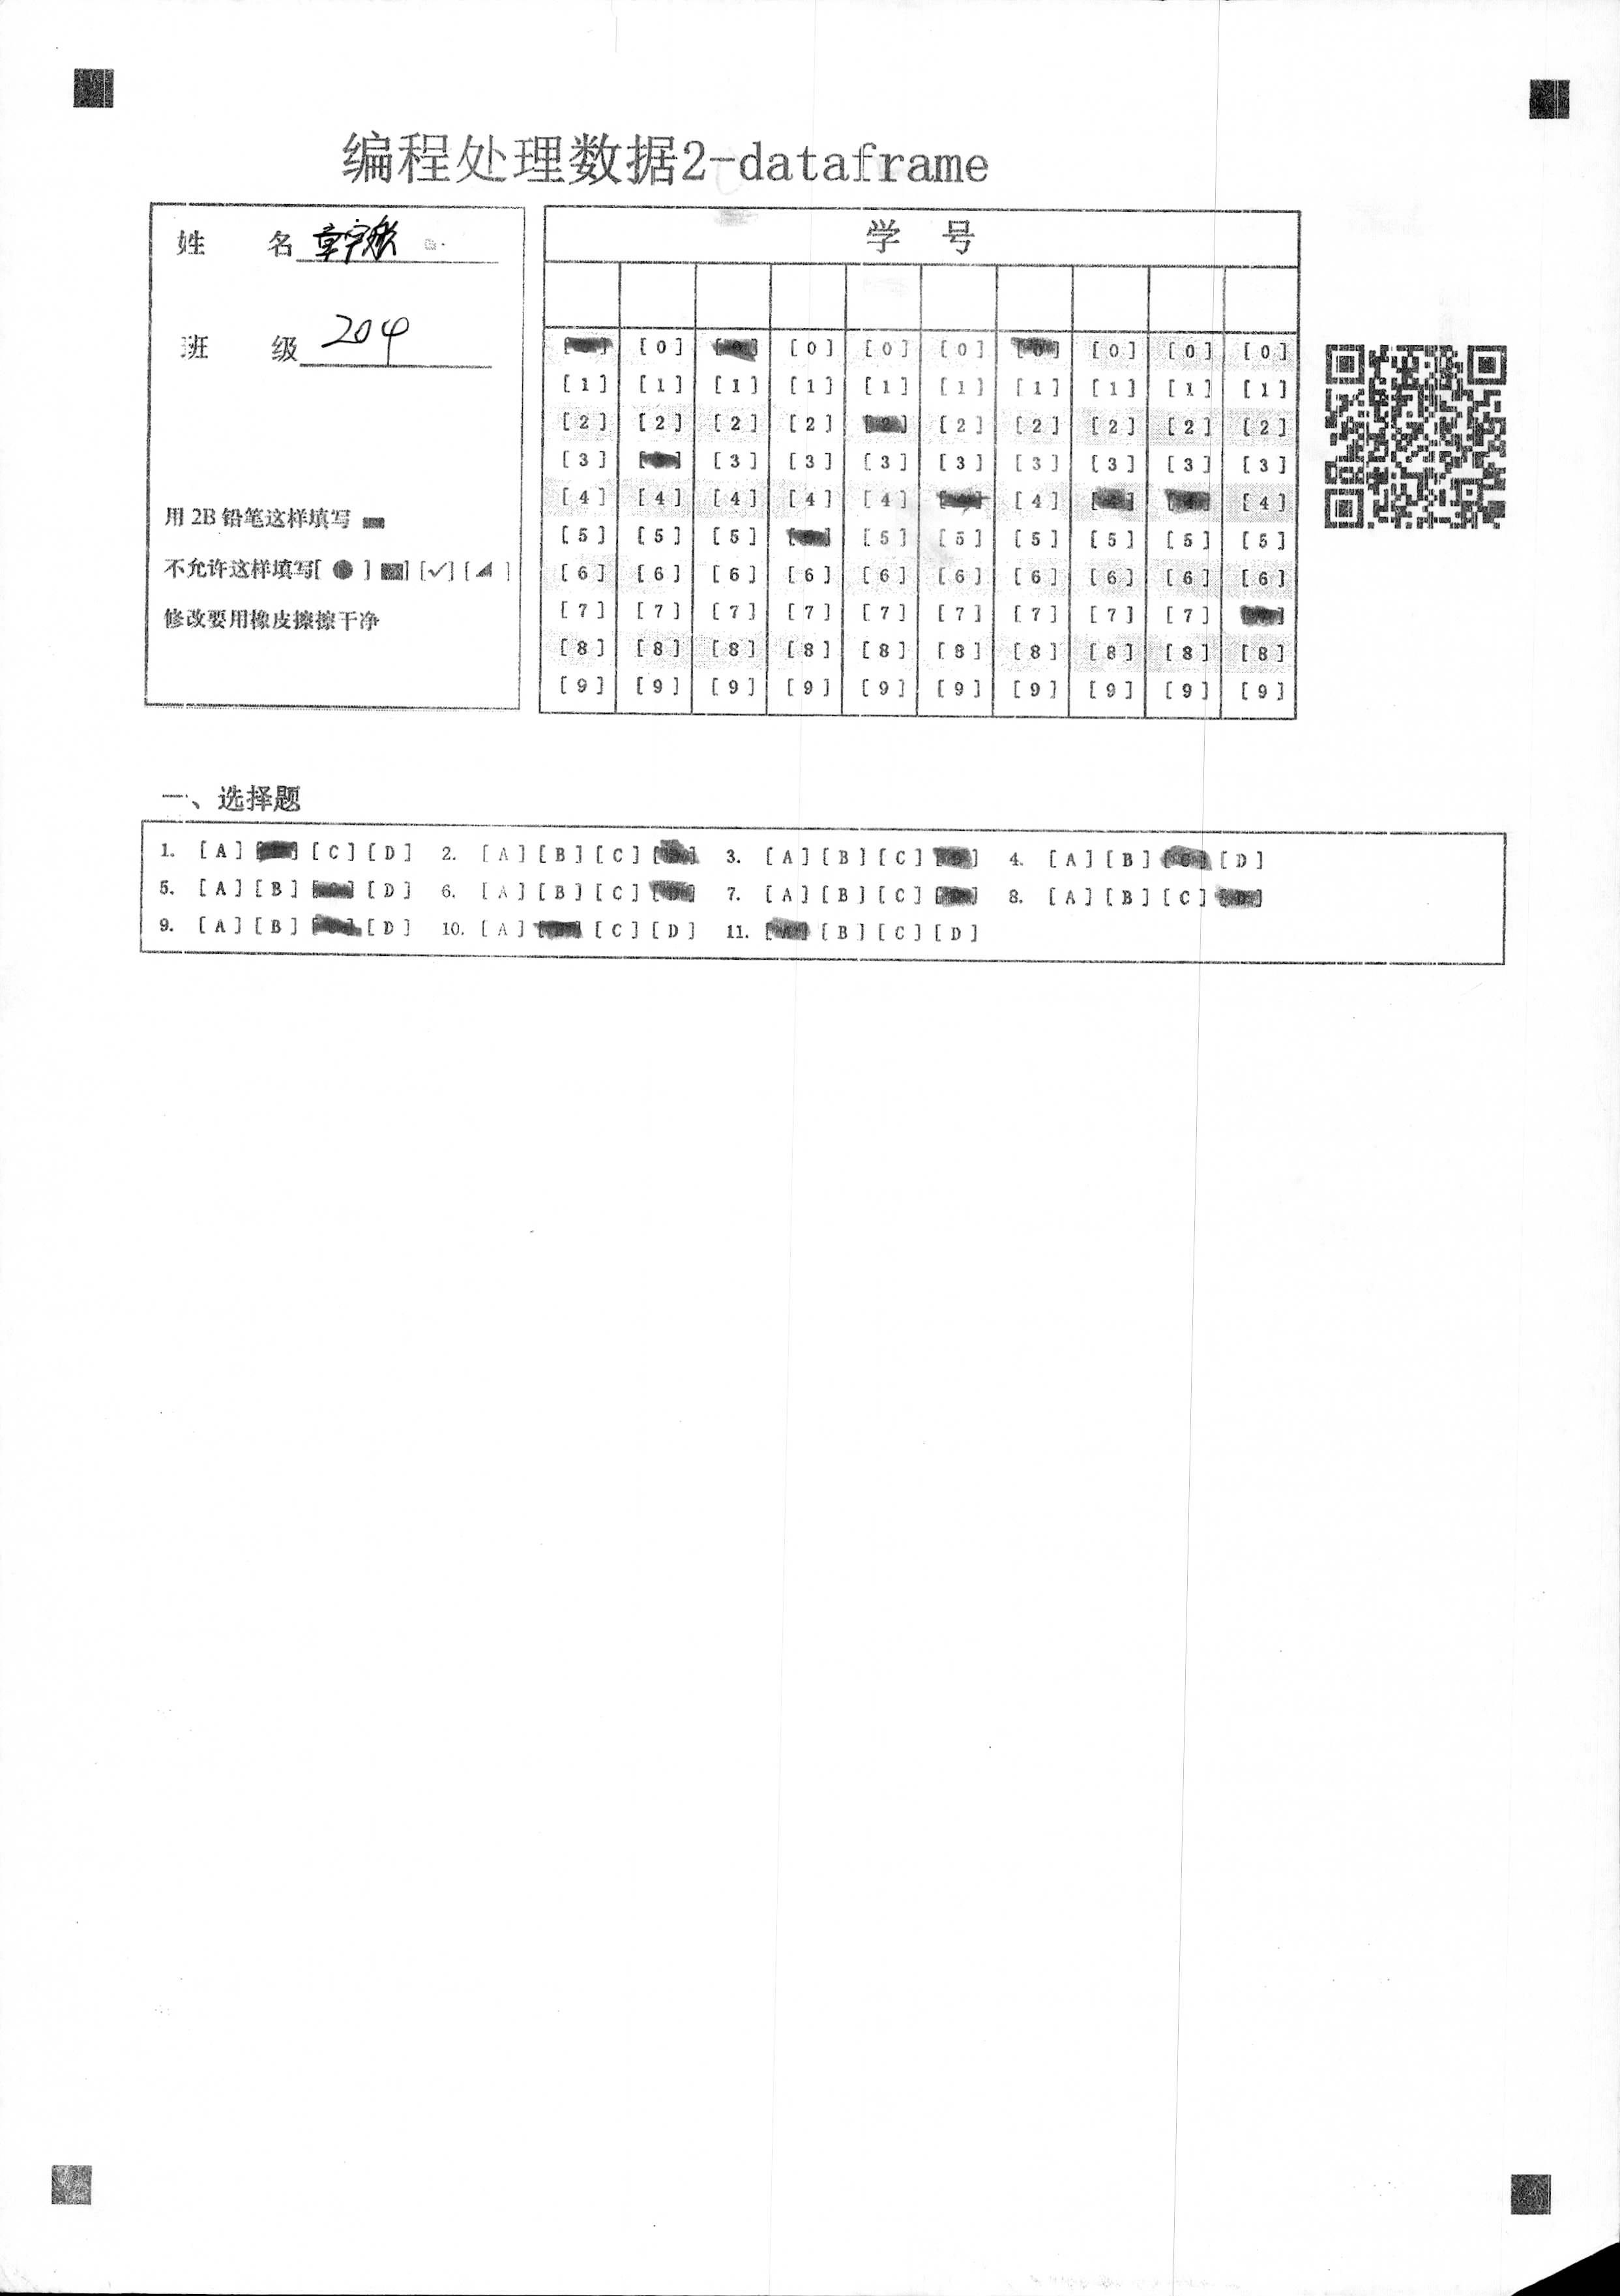 编程处理数据2-dataframe
姓 名 章宇航
班 级 204
用 2B 铅笔这样填写
不允许这样填写[ ● ] [✓] [ ]
修改要用橡皮擦擦干净
学 号
[0] [0] [0] [0] [0] [0] [0]
[1] [1] [1] [1] [1] [1] [1] [1] [1] [1]
[2] [2] [2] [2] [2] [2] [2] [2] [2] [2]
[3] [3] [3] [3] [3] [3] [3] [3] [3]
[4] [4] [4] [4] [4] [4] [4]
[5] [5] [5] [5] [5] [5] [5] [5] [5]
[6] [6] [6] [6] [6] [6] [6] [6] [6] [6]
[7] [7] [7] [7] [7] [7] [7] [7] [7]
[8] [8] [8] [8] [8] [8] [8] [8] [8] [8]
[9] [9] [9] [9] [9] [9] [9] [9] [9] [9]
一、选择题
1. [A] [C] [D] 2. [A] [B] [C] 3. [A] [B] [C] 4. [A] [B] [D]
5. [A] [B] [D] 6. [A] [B] [C] 7. [A] [B] [C] 8. [A] [B] [C]
9. [A] [B] [D] 10. [A] [C] [D] 11. [B] [C] [D]